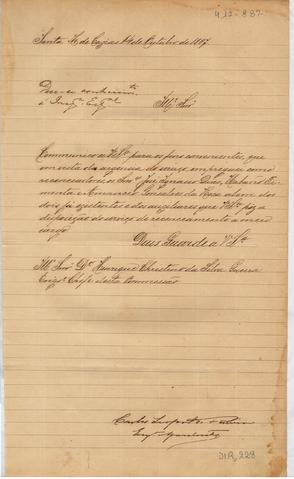 4-12-887
Santa M. de Caxias 14 de Outubro de 1887
Deu-se conhecim.to
á Insp. G.al
Illm.o Snr
Communico a V.S.a para os fins convenientes, que
em vista da urgencia do serviço empreguei como
recenceadores os Snr.s José Ignacio Dias,
e Amancio Gonçalves da Rosa alem dos
dois já existentes e dos auxiliares que V.S.a poz a
disposição do serviço de recenceamento a meu
cargo
Deus Guarde a V.S.a
Illm.o Snr D.r Henrique Christino da Silva
Eng.o Chefe desta Commissão
Carlos
Eng.o Ajudante
DIR, 228